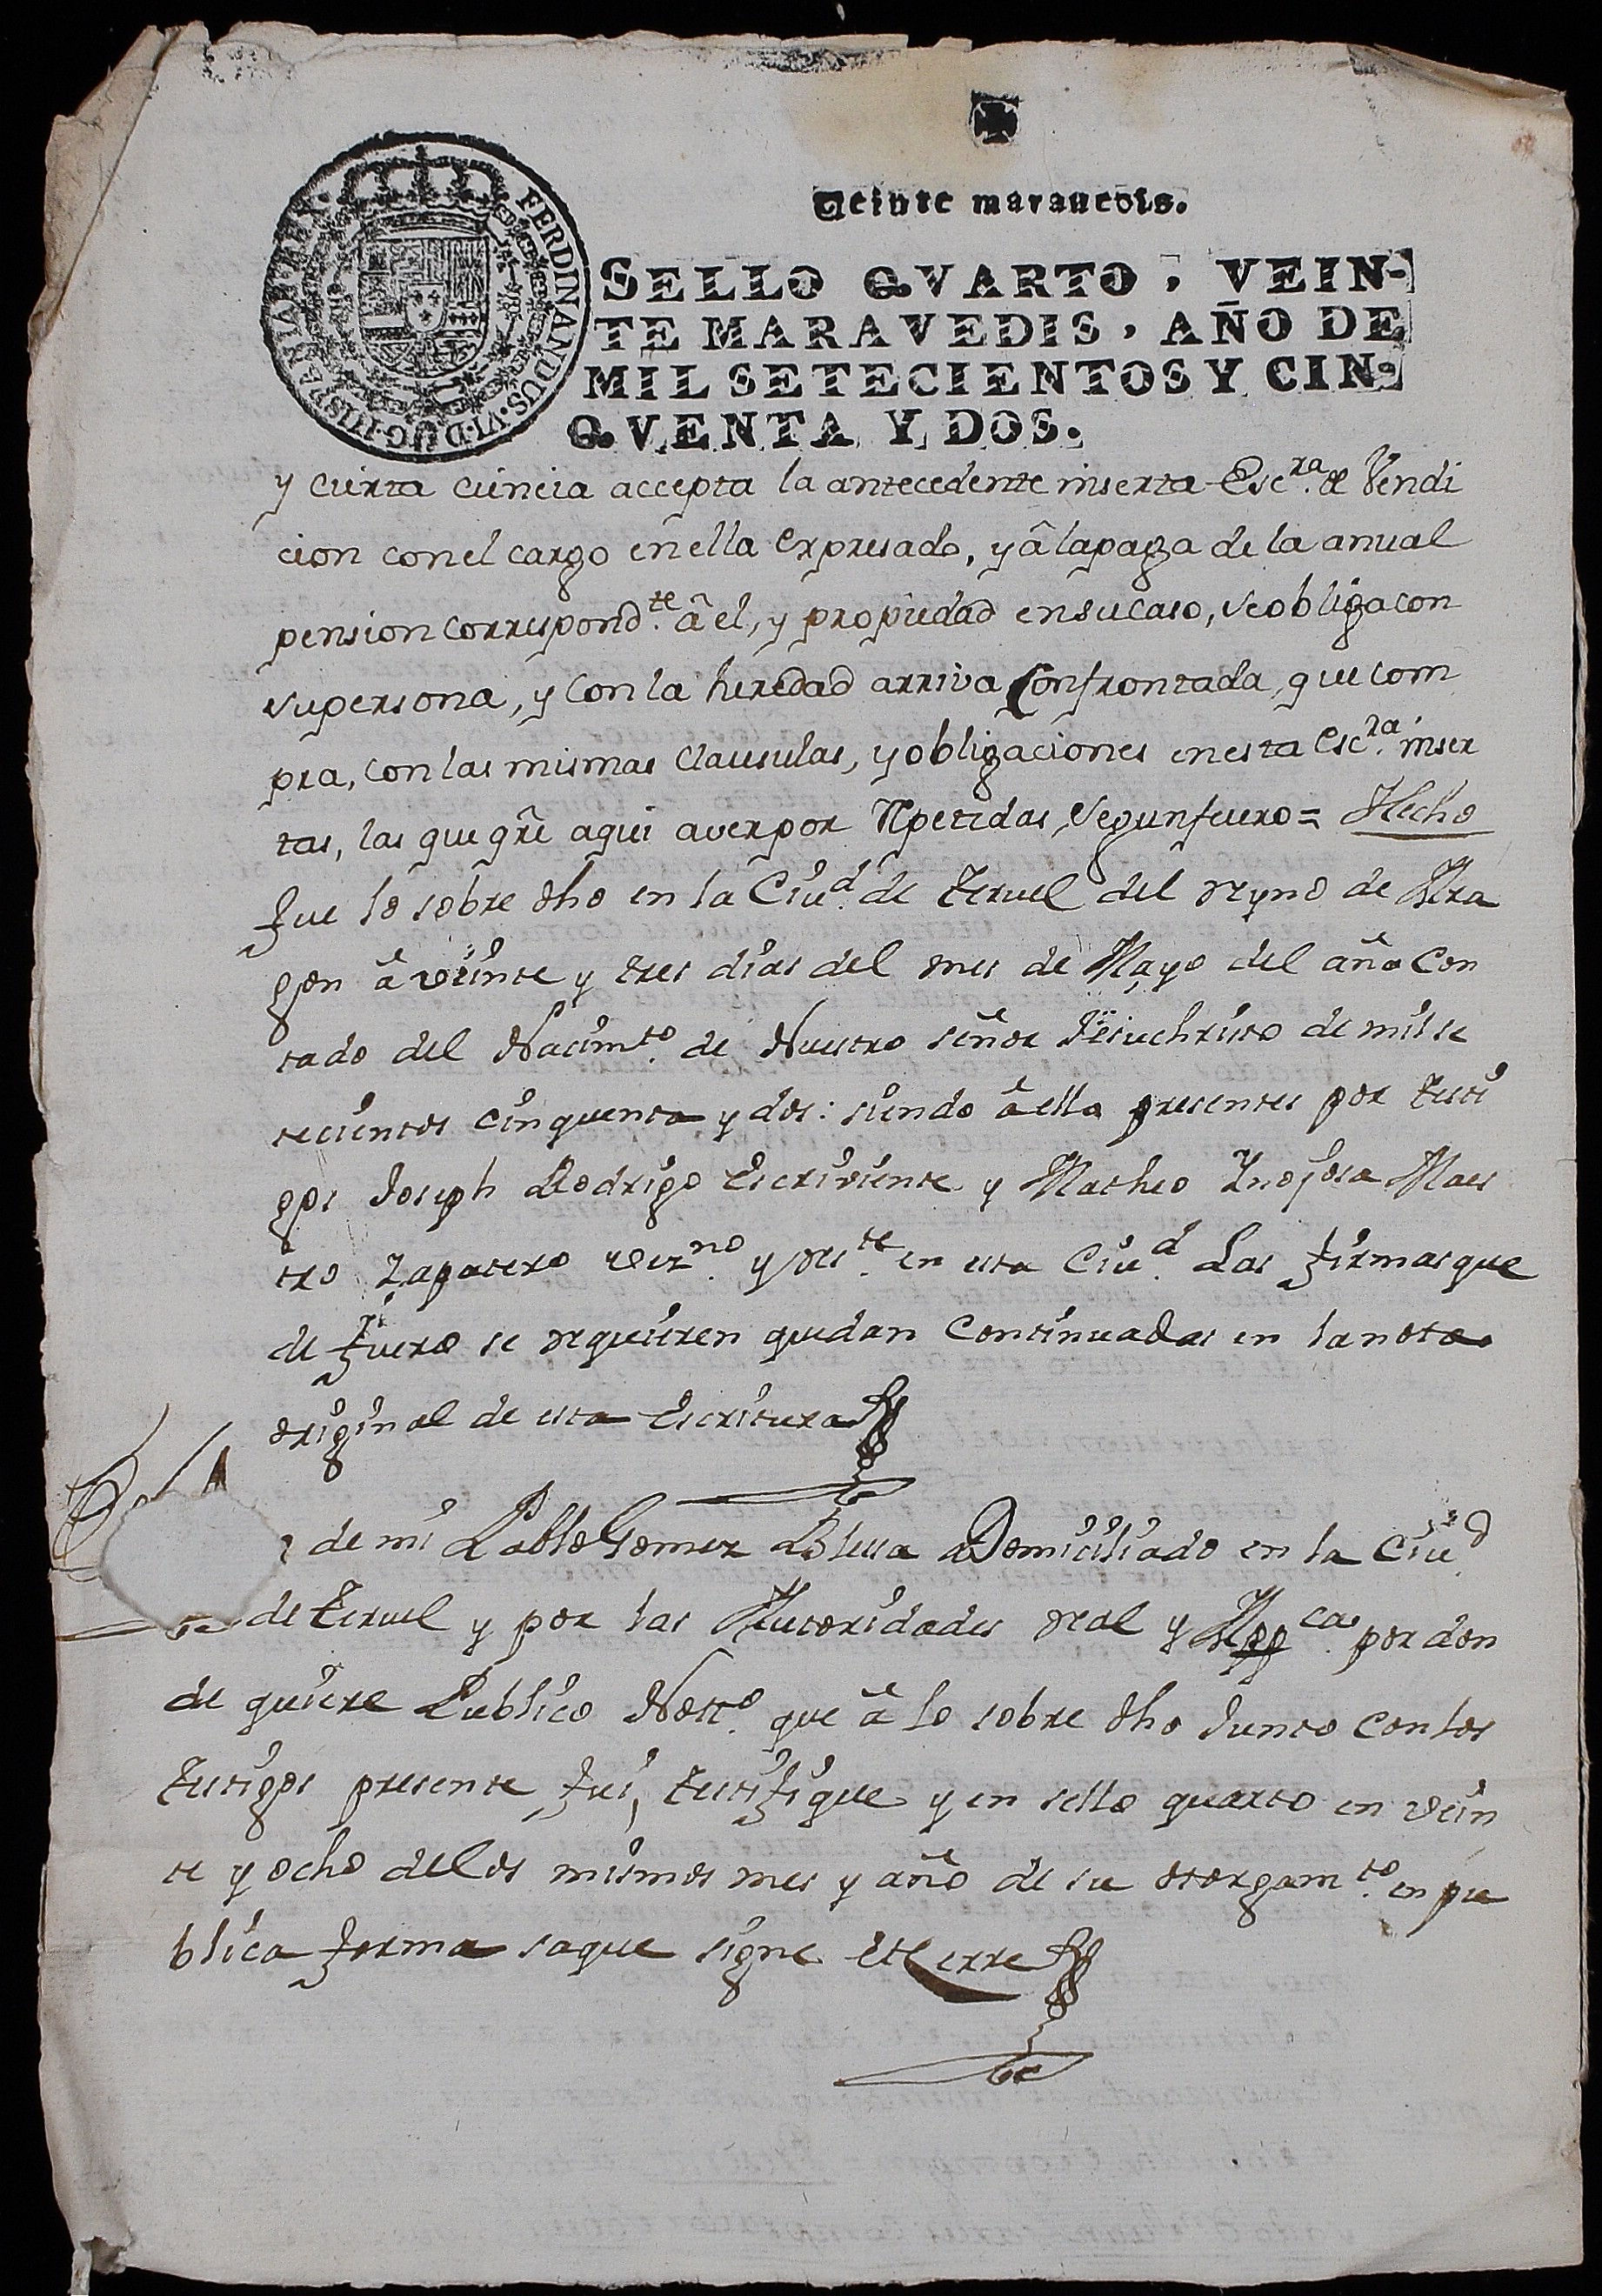 Veinte maravedis.
FERDINANDUS·VI·D·G·HISPANIAR·REX·
SELLO QVARTO, VEIN-
TE MARAVEDIS, AÑO DE
MIL SETECIENTOS Y CIN-
QVENTA Y DOS.
y cierta ciencia accepta la antecedente inserta Escra. de Vendi
cion con el cargo en ella expresado, y â la paga de la anual
pension correspondte. â el, y propiedad en su caso, se obliga con
su persona, y con la heredad arriva Confrontada, que com
pra, con las mismas clausulas, y obligaciones en esta Escra. inser
tas, las que qre aqui aver por Repetidas, Segun fuero = Hecho
fue lo sobre dho en la Ciud. de Teruel del reyno de Ara
gon â veinte y tres dias del mes de Mayo del año Con
tado del Nacimto. de Nuestro señor Jesuchristo de mil se
tecientos cinquenta y dos: siendo â ella presentes por testi
gos Joseph Rodrigo Escriviente y Matheo Inojosa Maes
tro Zapatero vezno. y resте. en esta Ciud. Las firmas que
de fuero se requieren quedan Continuadas en la nota
original de esta Escritura
de mi Pablo Gomez Domiciliado en la Ciud.
de Teruel y por las Autoridades real y Appca. por don
de quiere Publico Notto. que â lo sobre dho Junto con los
testigos presente fui, testifique y en sello quarto en vein
te y ocho de los mismos mes y año de su otorgamto. en pu
blica forma saque signe et Cerre